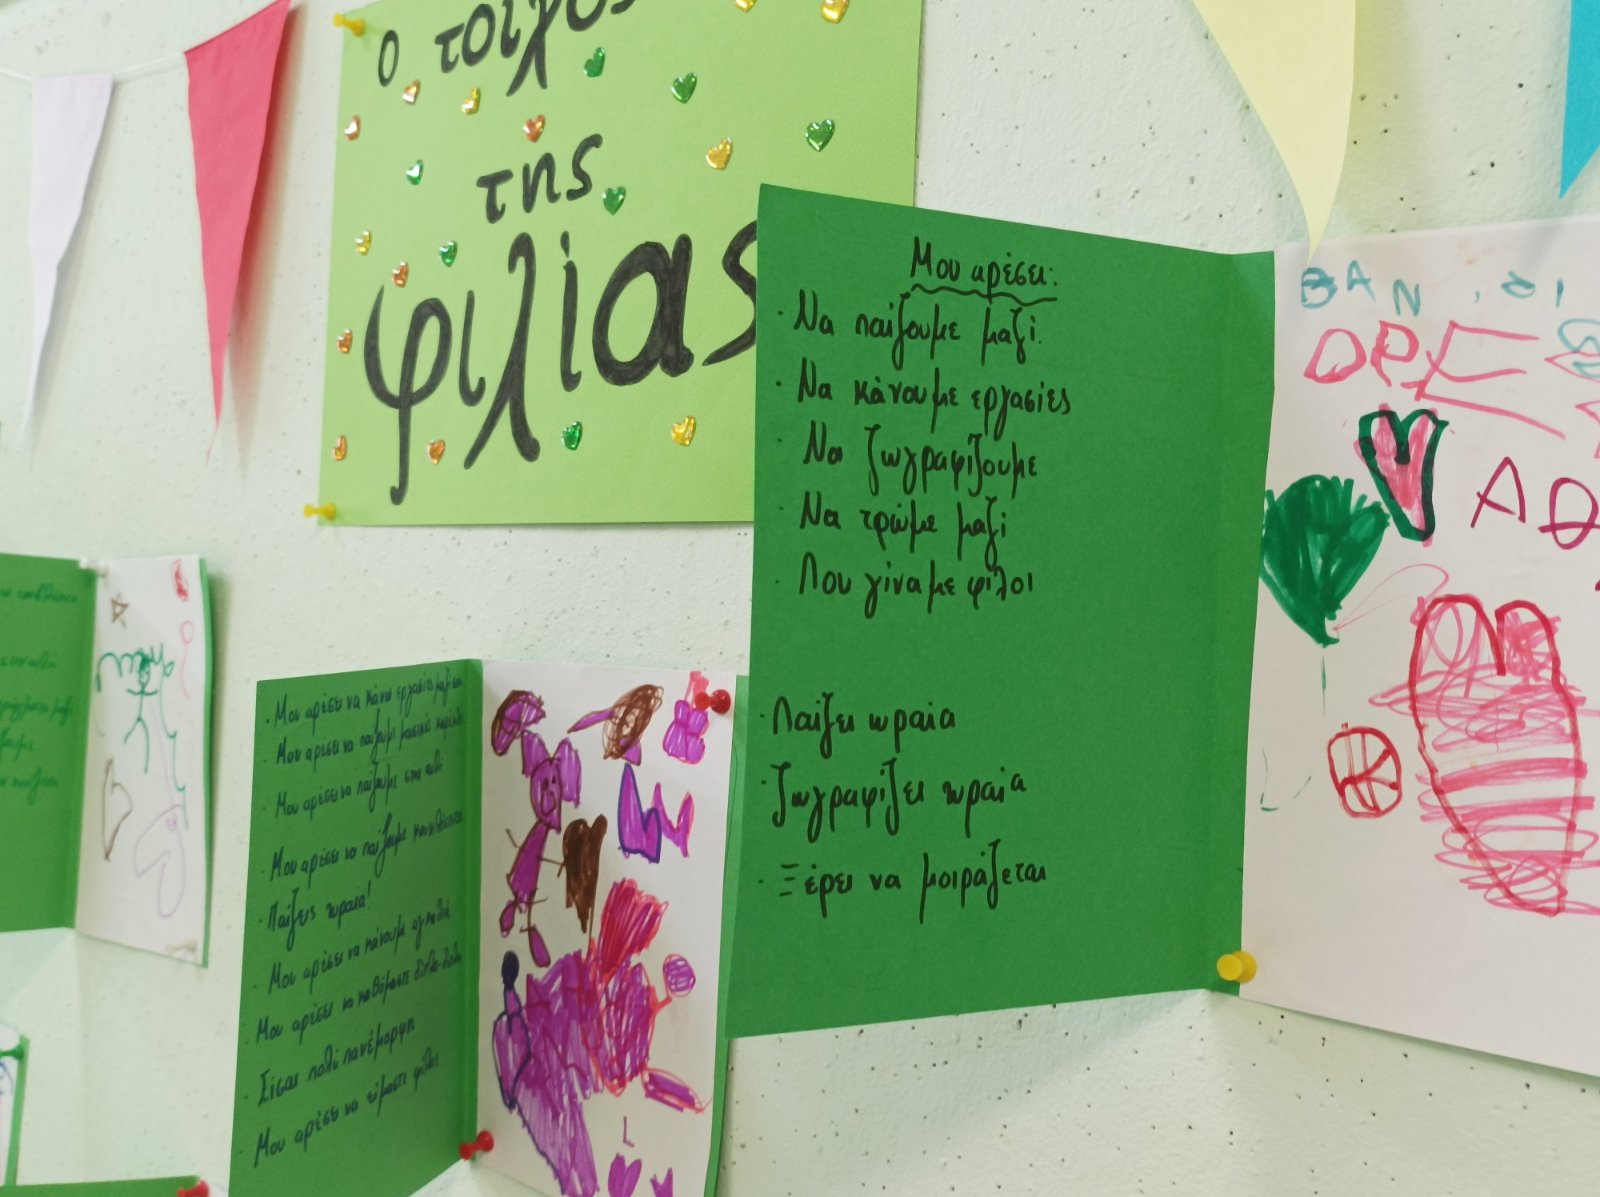 ο τοίχος
της
φιλίας
Μου αρέσει:
· Να παίζουμε μαζί.
· Να κάνουμε εργασίες
· Να ζωγραφίζουμε
· Να τρώμε μαζί
· Που γίναμε φίλοι
· Παίζει ωραία
· Ζωγραφίζει ωραία
· Ξέρει να μοιράζεται
· Μου αρέσει να κάνω εργασία μαζί σου
· Μου αρέσει να παίζουμε μουσικές καρέκλες
· Μου αρέσει να παίζουμε στην αυλή
· Μου αρέσει να παίζουμε
· Παίζεις ωραία!
· Μου αρέσει να κάνουμε αγκαλιά
· Μου αρέσει να καθόμαστε δίπλα-δίπλα
· Είσαι πολύ πανέμορφη
· Μου αρέσει να είμαστε φίλες
ΒΑΝ
ΟΡΕ
ΑΘ